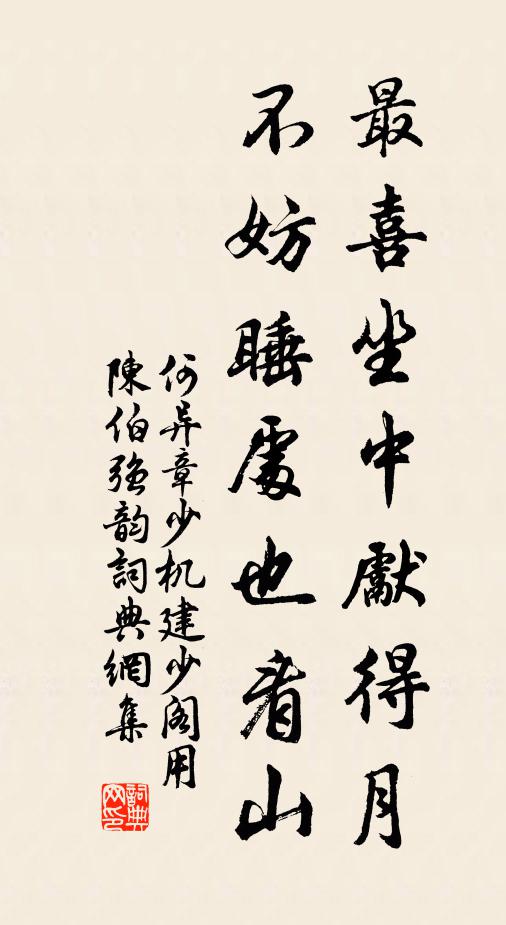 最喜坐中獻得月
不妨睡處也看山
何异章少机建少阁用
陳伯强韵詞典網集
詞典网印